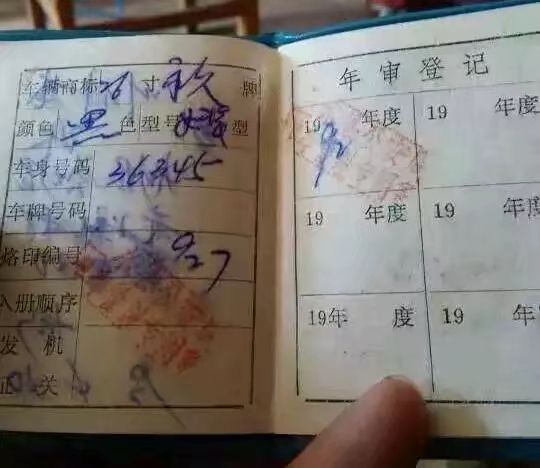 车辆商标 26 寸 牌
颜色 黑 色 型号 型
车身号码 36345
车牌号码
烙印编号 927
入册顺序
发 机
正 关
年审登记
19 92 年度 19 年度
19 年度 19 年度
19年 度 19 年